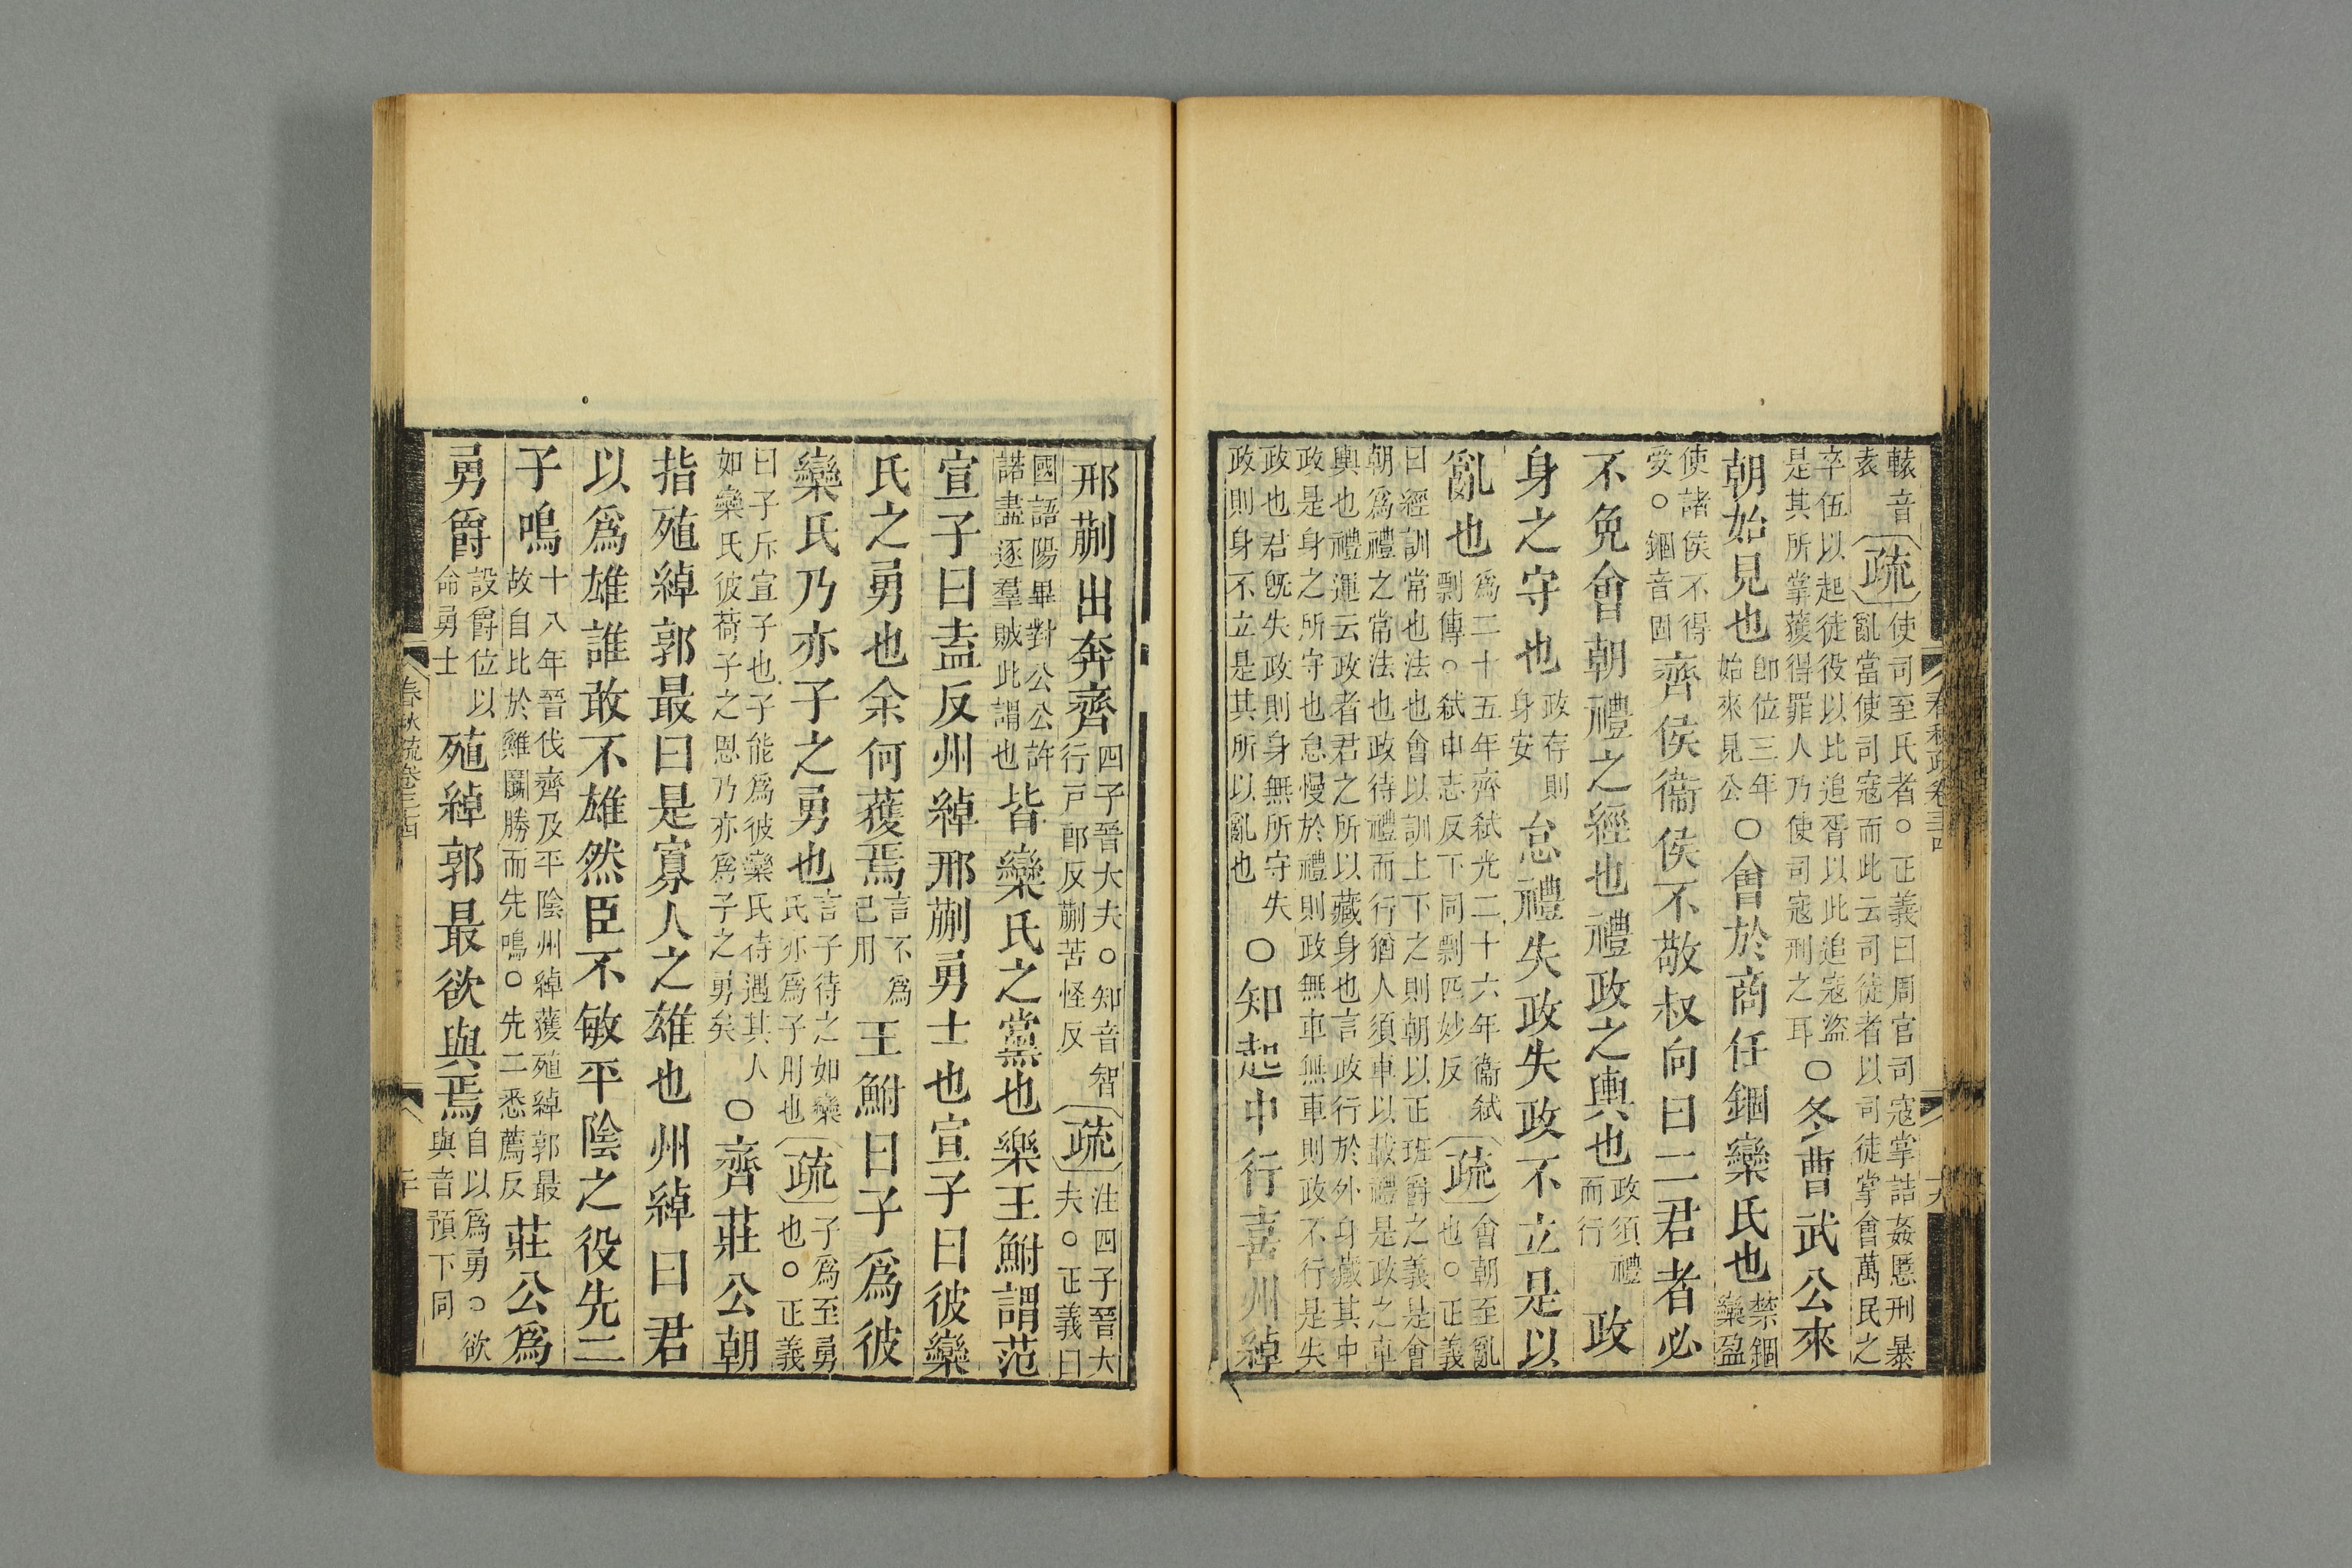 轅音袁疏使司至氏者○正義曰周官司寇掌詰姦慝刑暴亂當使司寇而此云司徒者以司徒掌會萬民之
卒伍以起徒役以比追胥以此追寇盜是其所掌獲得罪人乃使司寇刑之耳○冬曹武公來
朝始見也卽位三年始來見公○會於商任錮欒氏也禁錮欒盈
使諸侯不得受○錮音固齊侯衞侯不敬叔向曰二君者必
不免會朝禮之經也禮政之輿也政須禮而行政
身之守也政存則身安怠禮失政失政不立是以
亂也爲二十五年齊弒光二十六年衞弒剽傳○弒申志反下同剽匹妙反疏會朝至亂也○正義
曰經訓常也法也會以訓上下之則朝以正班爵之義是會朝爲禮之常法也政待禮而行猶人須車以載禮是政之車
輿也禮運云政者君之所以藏身也言政行於外身藏其中政是身之所守也怠慢於禮則政無車無車則政不行是失
政也君旣失政則身無所守失政則身不立是其所以亂也○知起中行喜州綽
春秋疏卷三十四
邢蒯出奔齊四子晉大夫○知音智行戸郎反蒯苦怪反疏注四子晉大夫○正義曰
國語陽畢對公公許諾盡逐羣賊此謂也皆欒氏之黨也樂王鮒謂范
宣子曰盍反州綽邢蒯勇士也宣子曰彼欒
氏之勇也余何獲焉言不爲己用王鮒曰子爲彼
欒氏乃亦子之勇也言子待之如欒氏亦爲子用也疏子爲至勇也○正義
曰子斥宣子也子能爲彼欒氏待遇其人如欒氏彼荷子之恩乃亦爲子之勇矣○齊莊公朝
指殖綽郭最曰是寡人之雄也州綽曰君
以爲雄誰敢不雄然臣不敏平陰之役先二
子鳴十八年晉伐齊及平陰州綽獲殖綽郭最故自比於雞鬬勝而先鳴○先二悉薦反莊公爲
勇爵設爵位以命勇士殖綽郭最欲與焉自以爲勇○欲與音預下同
春秋疏卷三十四